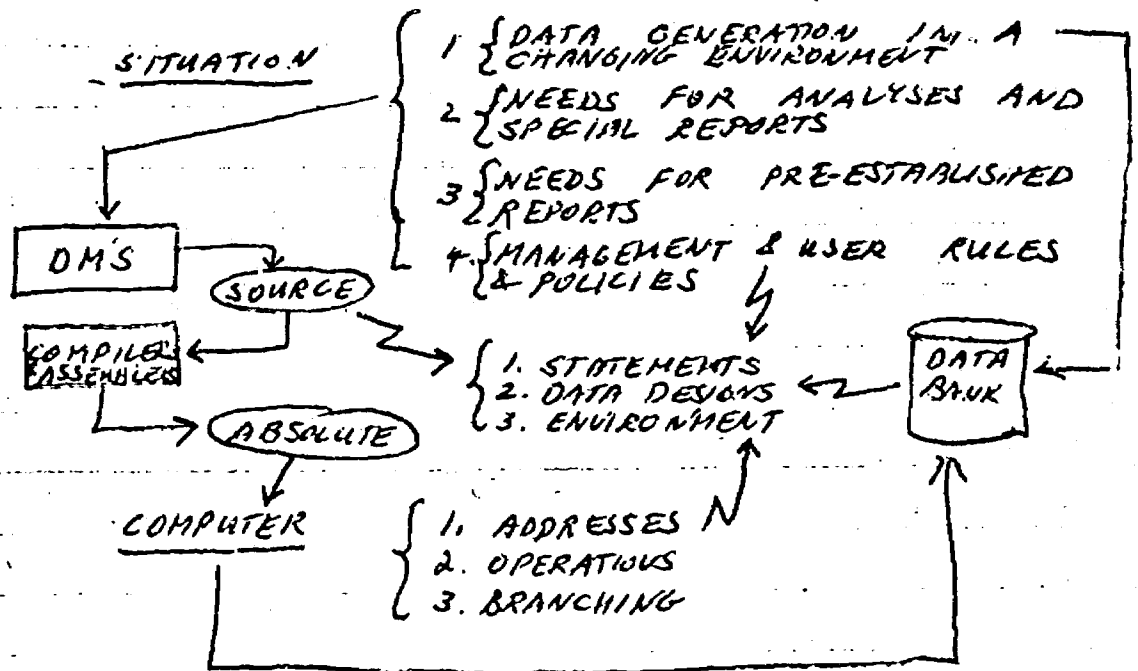 SITUATION
1 DATA GENERATION IN A
CHANGING ENVIRONMENT
2 NEEDS FOR ANALYSES AND
SPECIAL REPORTS
3 NEEDS FOR PRE-ESTABLISHED
REPORTS
4. MANAGEMENT & USER RULES
& POLICIES
DM'S
SOURCE
COMPILERS
ASSEMBLERS
1. STATEMENTS
2. DATA DESIGNS
3. ENVIRONMENT
DATA
BANK
ABSOLUTE
COMPUTER
1. ADDRESSES
2. OPERATIONS
3. BRANCHING